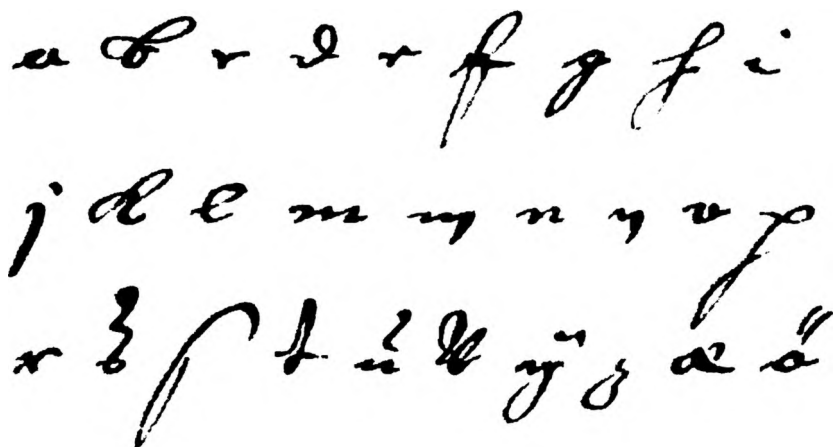 a b c d e f g h i
j k l m m n n o p
r s ſ t u ÿ z æ ö